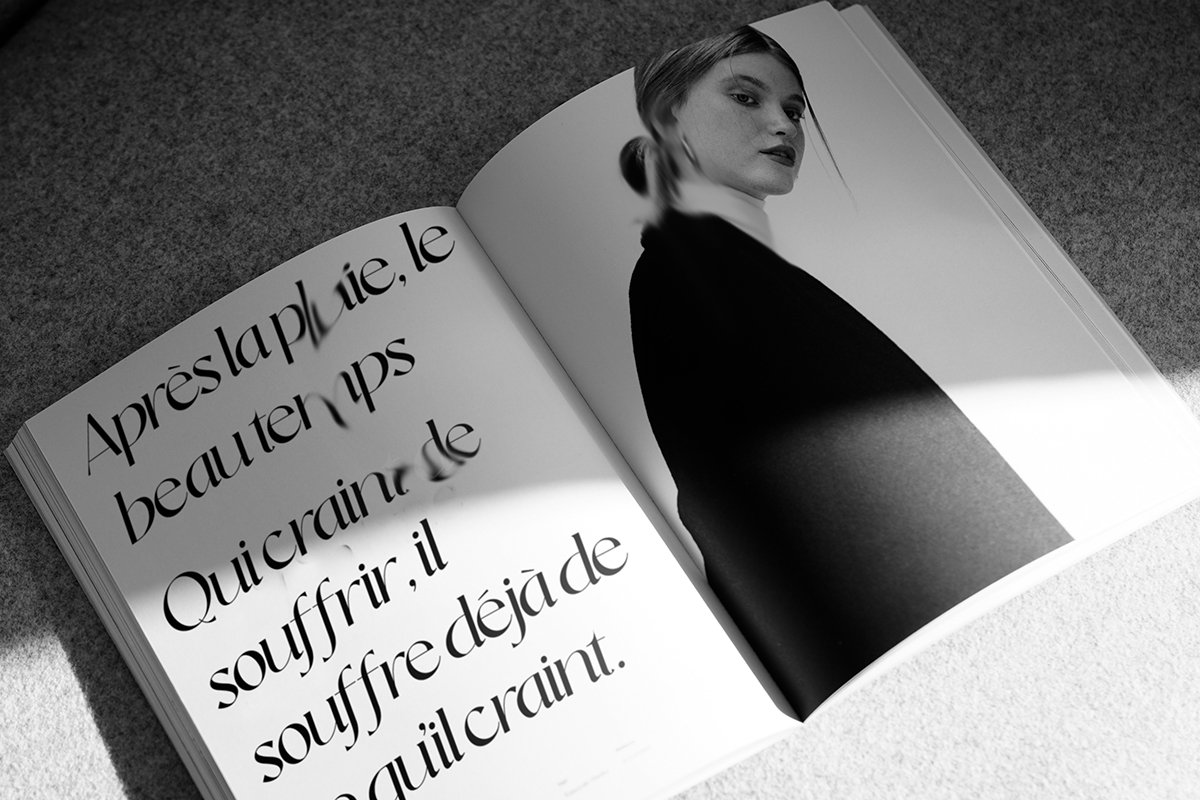 Après la pluie, le
beau temps
Qui craint de
souffrir, il
souffre déjà de
qu'il craint.